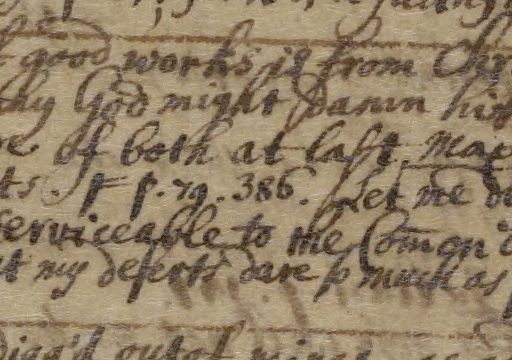 good works is from Chr
thy God might Damn him
of both at last. May
ts. ff p. 79. 386. Let me
serviceable to the Com̄on
it my deserts dare so much as
digg'd out of